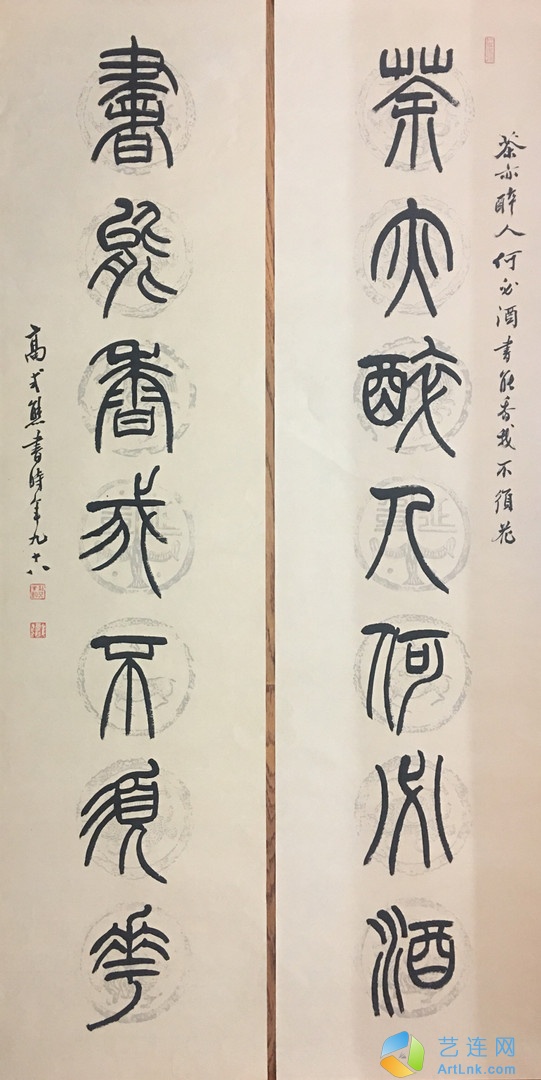 茶亦醉人何必酒書能香我不須花
茶亦醉人何必酒
書能香我不須華
高式熊書時年九十八
艺连网
ArtLnk.com